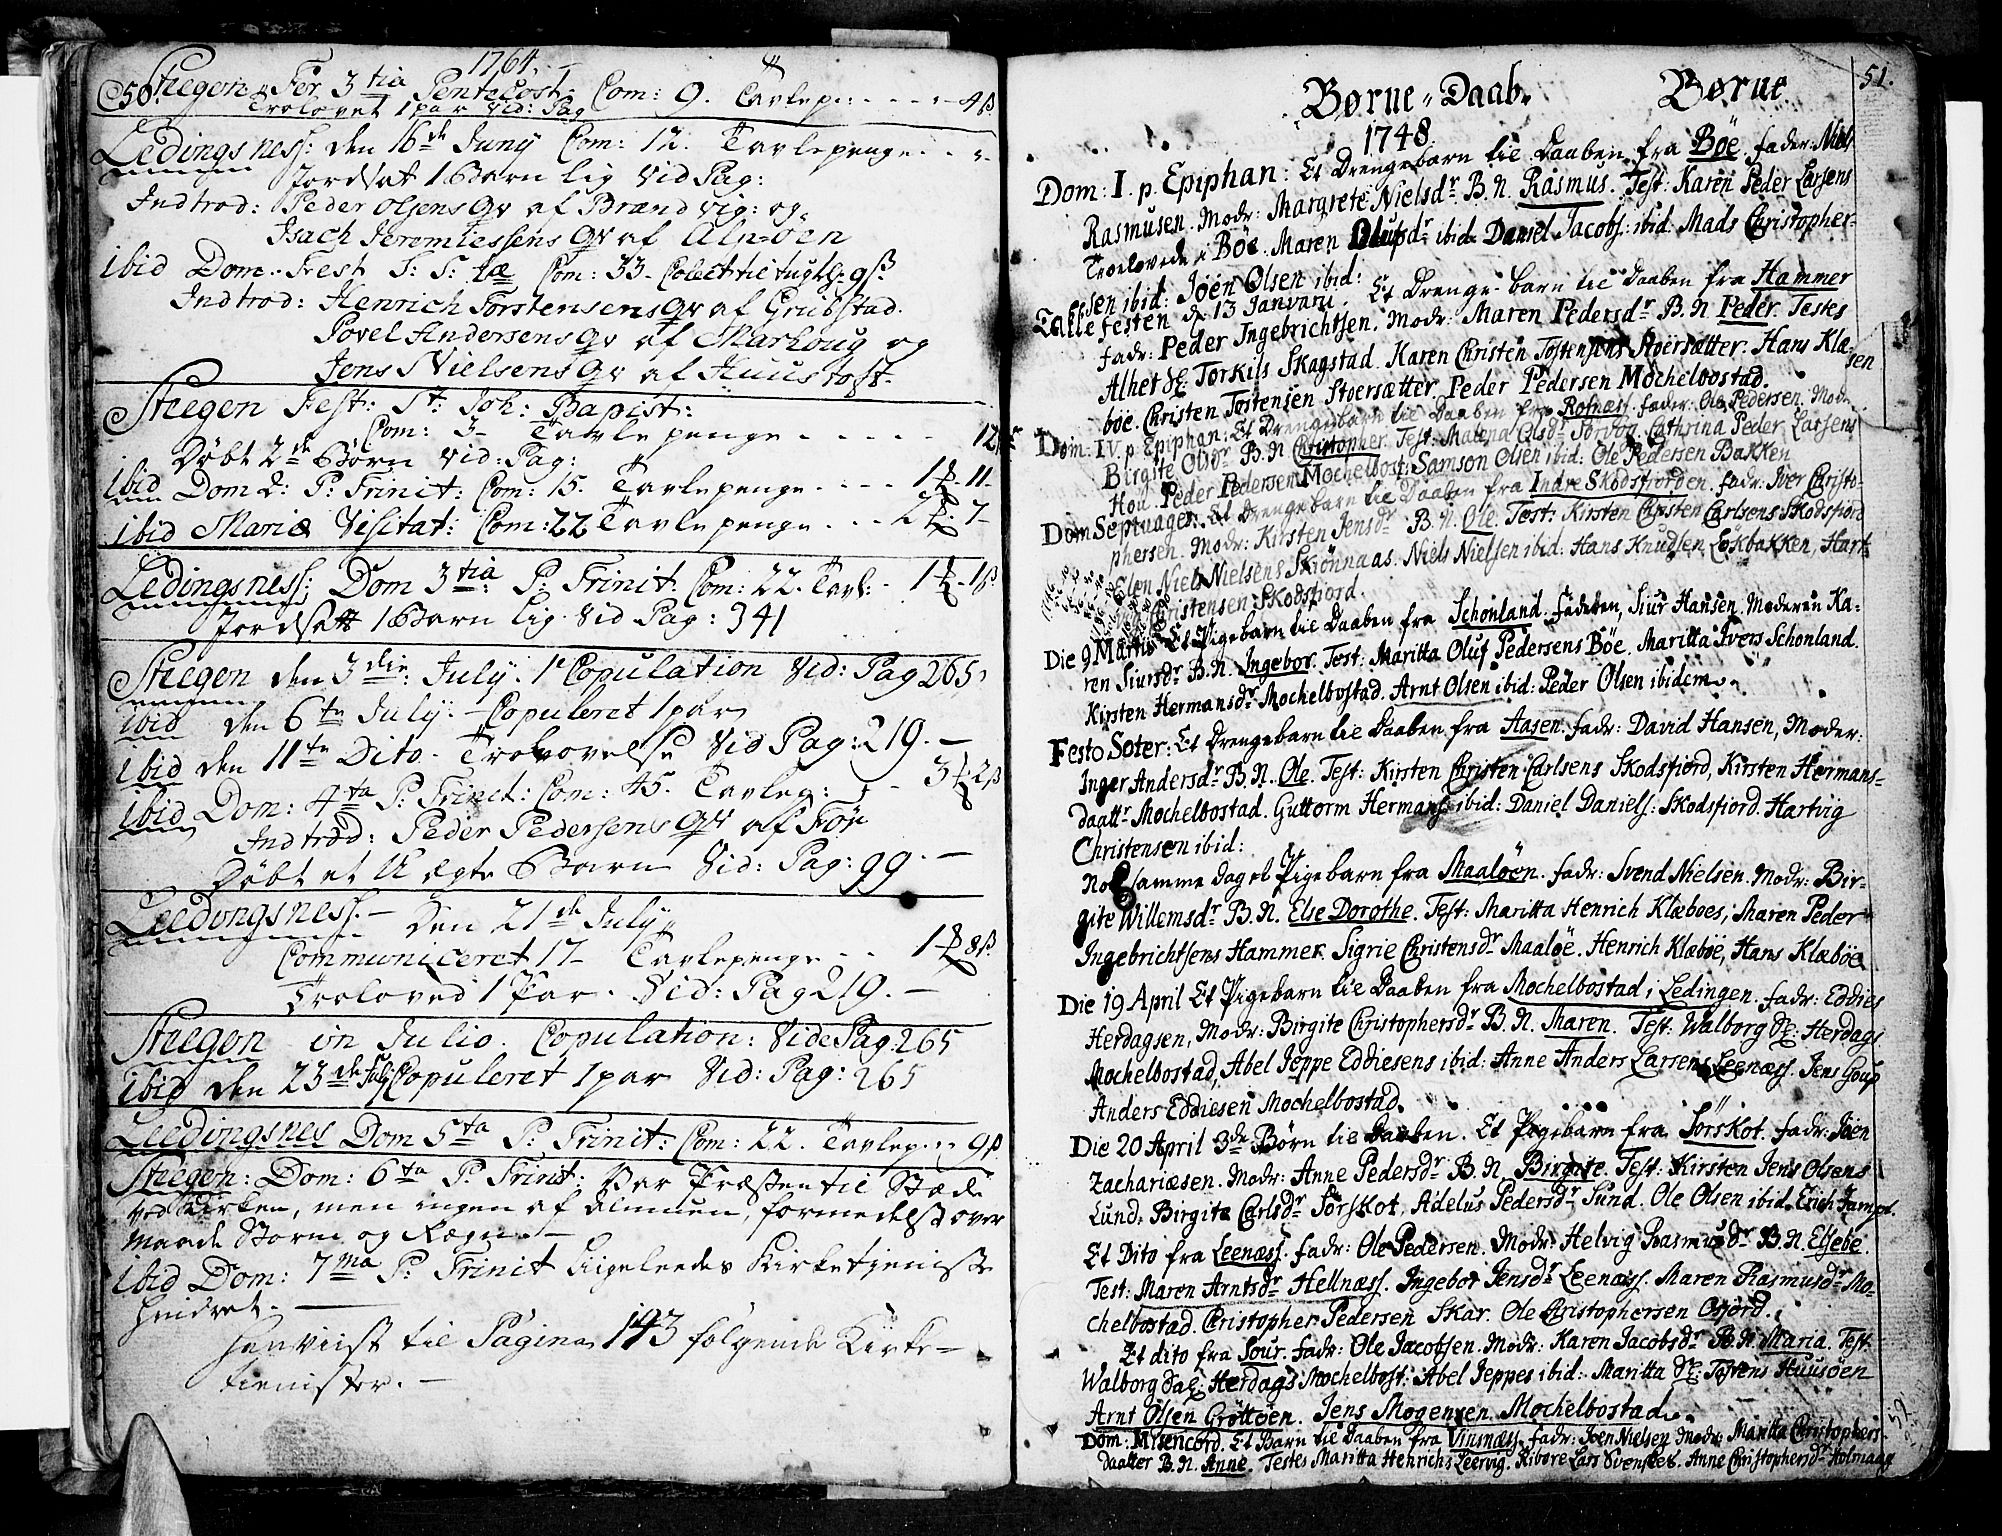 1764.
50. Steegen Fer. 3 tia Pentecost. Com: 9. Tavlep: - - - - 4ß
Trolovet 1 par vid: Pag
Ledingsness: den 16de Juny Com: 12. Tavlepenge - - -
Jordsat 1 Barn lig Vid Pag:
Indtrod: Peder Olsens Qv af Brændvig: og
Isach Jeremiessens Qv af Alpøen
ibid Dom. Fest S: S: tæ Com: 33 - Colect til tugth: 9ß
Indtrod: Henrich Torstensens Qv af Grübstad.
Povel Andersens Qv af Marhoug og
Jens Nielsens Qv af Huustoft.
Steegen Fest: St: Joh: Bapist:
Com: 3 - Tavlepenge - - - - - 12
Døbt 2de Børn Vid: Pag:
ibid Dom 2: P: Trinit: Com: 15. Tavlepenge - - - - 1 - 11 -
ibid Mariæ Visitat: Com: 22 Tavlepenge - - - 2 - 7 -
Ledingsness: Dom 3tia: P: Trinit Com: 22. Tavl: - 1 - 1ß
Jordsatt 1 Barn lig. Vid Pag: 341
Steegen den 3die July. 1 Copulation Vid: Pag 265
ibid den 6te July. - Copuleret 1 par
ibid den 11te Dito - Trolovelse Vid Pag: 219. -
ibid Dom: 4ta P: Trinit: Com: 45. Tavlep: - - 3 2ß
Indtrod: Peder Pedersens Qv af Før
Døbt et Uægte Barn Vid: Pag: 99. -
Leedingsness. - Den 21de July
Communiceret 17 - Tavlepenge - - 1 8ß
Troloved 1 Par. Vid: Pag 219. -
Steegen in Julio. Copulation: Vide Pag: 265
ibid den 23de July Copuleret 1 par Vid: Pag: 265
Leedingsnes Dom 5ta P: Trinit: Com: 22. Tavlep: - 9ß
Steegen: Dom: 6ta P: Trinit: Var Præsten til Stæde
ved Kirken, men ingen af Almuen, formedelst over
maade Storm og Regn. -
ibid Dom: 7ma P: Trinit ligeleedes Kirketieniste
hindret. -
henviist til Pagina 143 følgende Kirke-
tienister. -
51.
Børne-Daab. Børne
1748
Dom: I. p. Epiphan: Et Drengebarn til Daaben fra Böe fader: Niels
Rasmusen. Modr: Margrete Nielsdr B. N. Rasmus. Test: Karen Peder Larsens
Troelovede i Böe. Maren Olufsdr ibid. Daniel Jacobs: ibid. Mads Christopher-
sen ibid: Joen Olsen ibid:
Tallefesten d. 13 Januarii. Et Drenge-barn til Daaben fra Hammer
fadr: Peder Ingebrichtsen. Modr: Maren Pedersdr B. N. Peder. Testes
Alhet Sl: Torkils Skagstad. Karen Christen Tostensens Stoersætter. Hans Klæ-
böe. Christen Tostensen Stoersætter. Peder Pedersen Mochelbostad.
Dom: IV. p. Epiphan: Et Drengebarn til Daaben fra Rosnæss. fader: Ole Pedersen. Modr
Birgite Olsdr B. N. Christopher. Test: Malena Olsdr Cathrina Peder Larsens
Hou. Peder Pedersen Mochelbost: Samson Olsen ibid: Ole Pedersen Bakken
Dom Septuages: Et Drengebarn til Daaben fra Indre Skodsfiorden. fadr: Iver Christo-
phersen. Modr: Kirsten Jensdr B. N. Ole. Test: Kirsten Christen Carlsens Skodsfiord
Elen Niels Nielsens Skiønnaas. Niels Nielsen ibid: Hans Knudsen Lokbakken, Hart-
Christensen Skodsfiord.
Die 9 Martii Et Pigebarn til Daaben fra Schonland. Faderen, Siur Hansen. Moderen Ka-
ren Siursdr B. N. Ingebor. Test: Maritta Oluf Pedersens Böe. Maritta Ivers Schonland.
Kirsten Hermansdr Mochelbostad. Arnt Olsen ibid: Peder Olsen ibidem.
Festo Soter: Et Drengebarn til Daaben fra Aasen. fadr: David Hansen, Moder:
Inger Andersdr B. N. Ole. Test: Kirsten Christen Carlsens Skodsfiord, Kirsten Hermans-
daattr Mochelbostad. Guttorm Hermans: ibid: Daniel Daniels: Skodsfiord. Hartvig
Christensen ibid:
Nok samme dag et Pigebarn fra Maalöen. fadr: Svend Nielsen. Modr: Bir-
gite Willemsdr B. N. Else Dorothe. Test: Maritta Henrich Klæboes, Maren Peder
Ingebrichtsens Hammer. Sigrie Christensdr Maalöe. Henrich Klæböe, Hans Klæböe
Die 19 April Et Pigebarn til Daaben fra Mochelbostad i Ledingen. fadr: Eddies
Herdagsen, Modr: Birgite Christophersdr B. N. Maren. Test: Walborg Sl: Herdags
Mochelbostad, Abel Jeppe Eddiesens ibid: Anne Anders Larsens Leenæss. Jens Goup
Anders Eddiesen Mochelbostad.
Die 20 April 3de Börn til Daaben. Et Pigebarn fra Sörskot. fadr: Joen
Zachariæsen. Modr: Anne Pedersdr B. N. Birgite. Test: Kirsten Jens Olsens
Lund. Birgite Carlsdr Sörskot, Adelus Pedersdr Sund. Ole Olsen ibid. Erich Jampt.
Et Dito fra Leenæss. fadr: Ole Pedersen. Modr: Helvig Rasmusdr B. N. Elsebe.
Test: Maren Arntsdr Hellnæss. Ingebor Jensdr Leenæss. Maren Rasmusdr Mo-
chelbostad. Christopher Pedersen Skar. Ole Christophersen Osfiord.
Et dito fra Sour. fadr: Ole Jacobsen. Modr: Karen Jacobsdr B. N. Maria. Test:
Walborg Sal: Herdags Mochelbost: Abel Jeppes ibid: Maritta Sl: Tostens Huusöen
Arnt Olsen Gröttöen. Jens Mogensen Mochelbostad.
Dom: Misericord. Et Barn til Daaben fra Vinsnæss. fadr: Joen Nielsen Modr: Maritta Christophers-
daatter B. N. Anne. Testes Maritta Henrichs Leervig. Ribore Lars Svenskes. Anne Christophersdr Holmaag